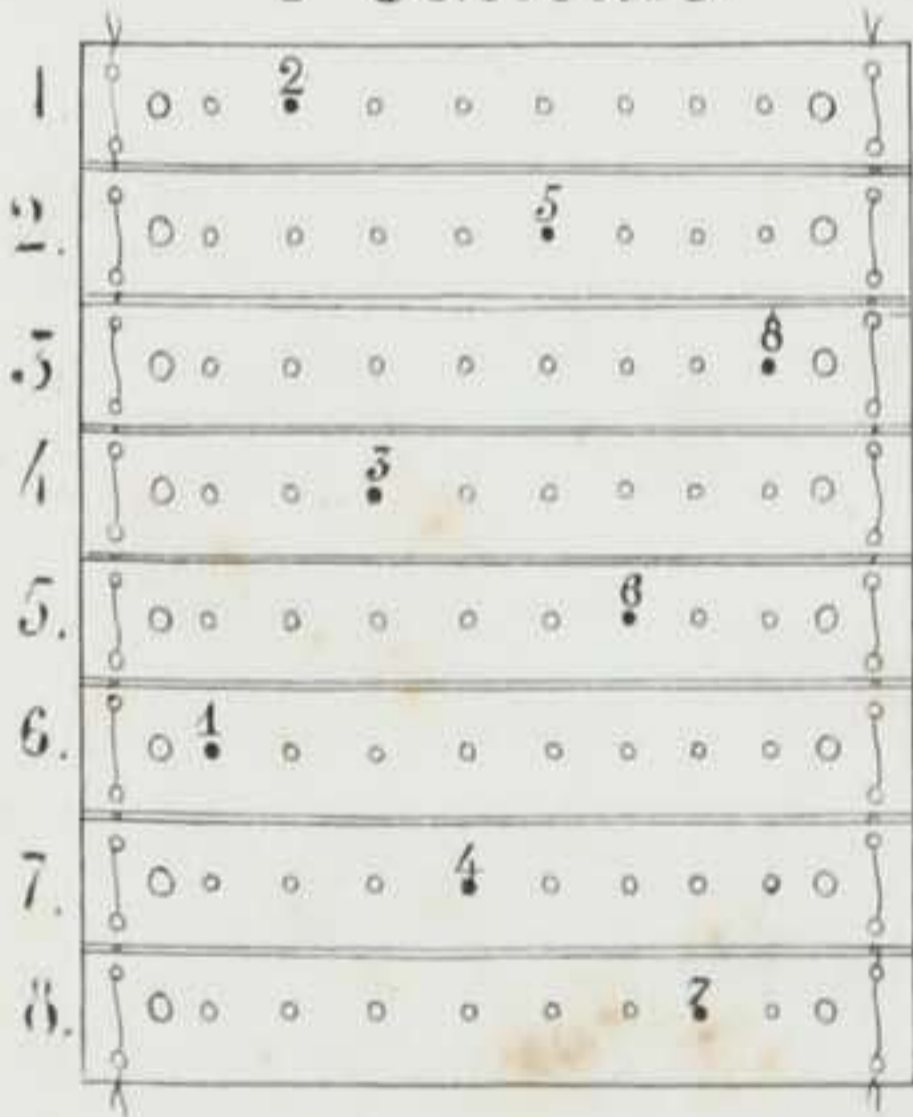 1 2
2. 5
3 8
4 3
5. 6
6. 1
7. 4
8. 7